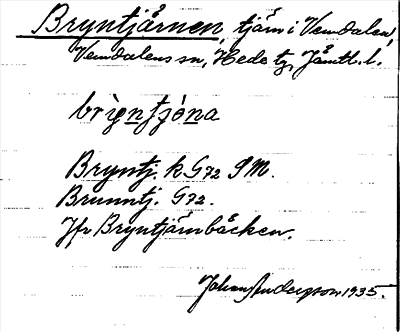 Bryntjärnen, tjärn i Vemdalen,
Vemdalens sn, Hede tg, Jämtl. l.
brìgntjó̱na
Bryntj. k. G72 SM.
Brunntj. G72.
Jfr Bryntjärnbäcken.
Johan Anderson 1935.